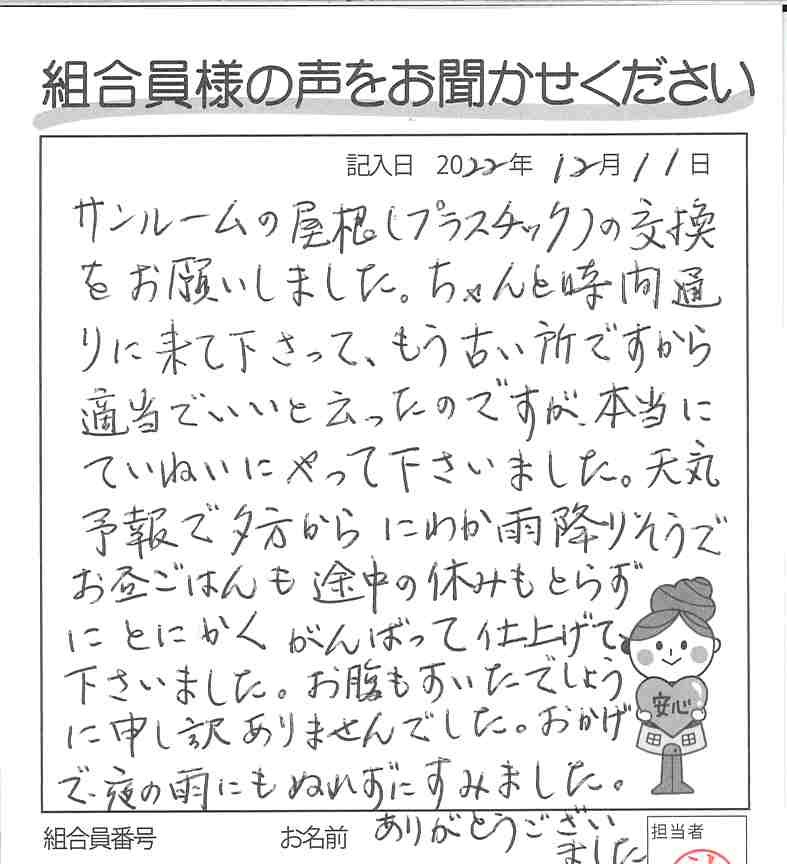 組合員様の声をお聞かせください
記入日 2022年 12月 11日
サンルームの屋根(プラスチック)の交換
をお願いしました。ちゃんと時間通
りに来て下さって、もう古い所ですから
適当でいいと云ったのですが、本当に
ていねいにやって下さいました。天気
予報で夕方からにわか雨降りそうで
お昼ごはんも途中の休みもとらず
にとにかくがんばって仕上げて、
下さいました。お腹もすいたでしょう
に申し訳ありませんでした。おかげ
で、夜の雨にもぬれずにすみました。
ありがとうござい
ました
安心
組合員番号 お名前 担当者